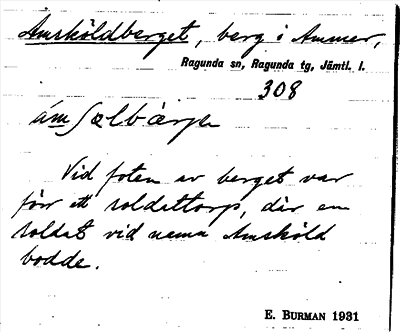 Amsköldberget, berg i Ammer,
Ragunda sn, Ragunda tg, Jämtl. l.
308
Vid foten av berget var
förr ett soldattorp, där en
soldat vid namn Amsköld
bodde.
E. BURMAN 1931